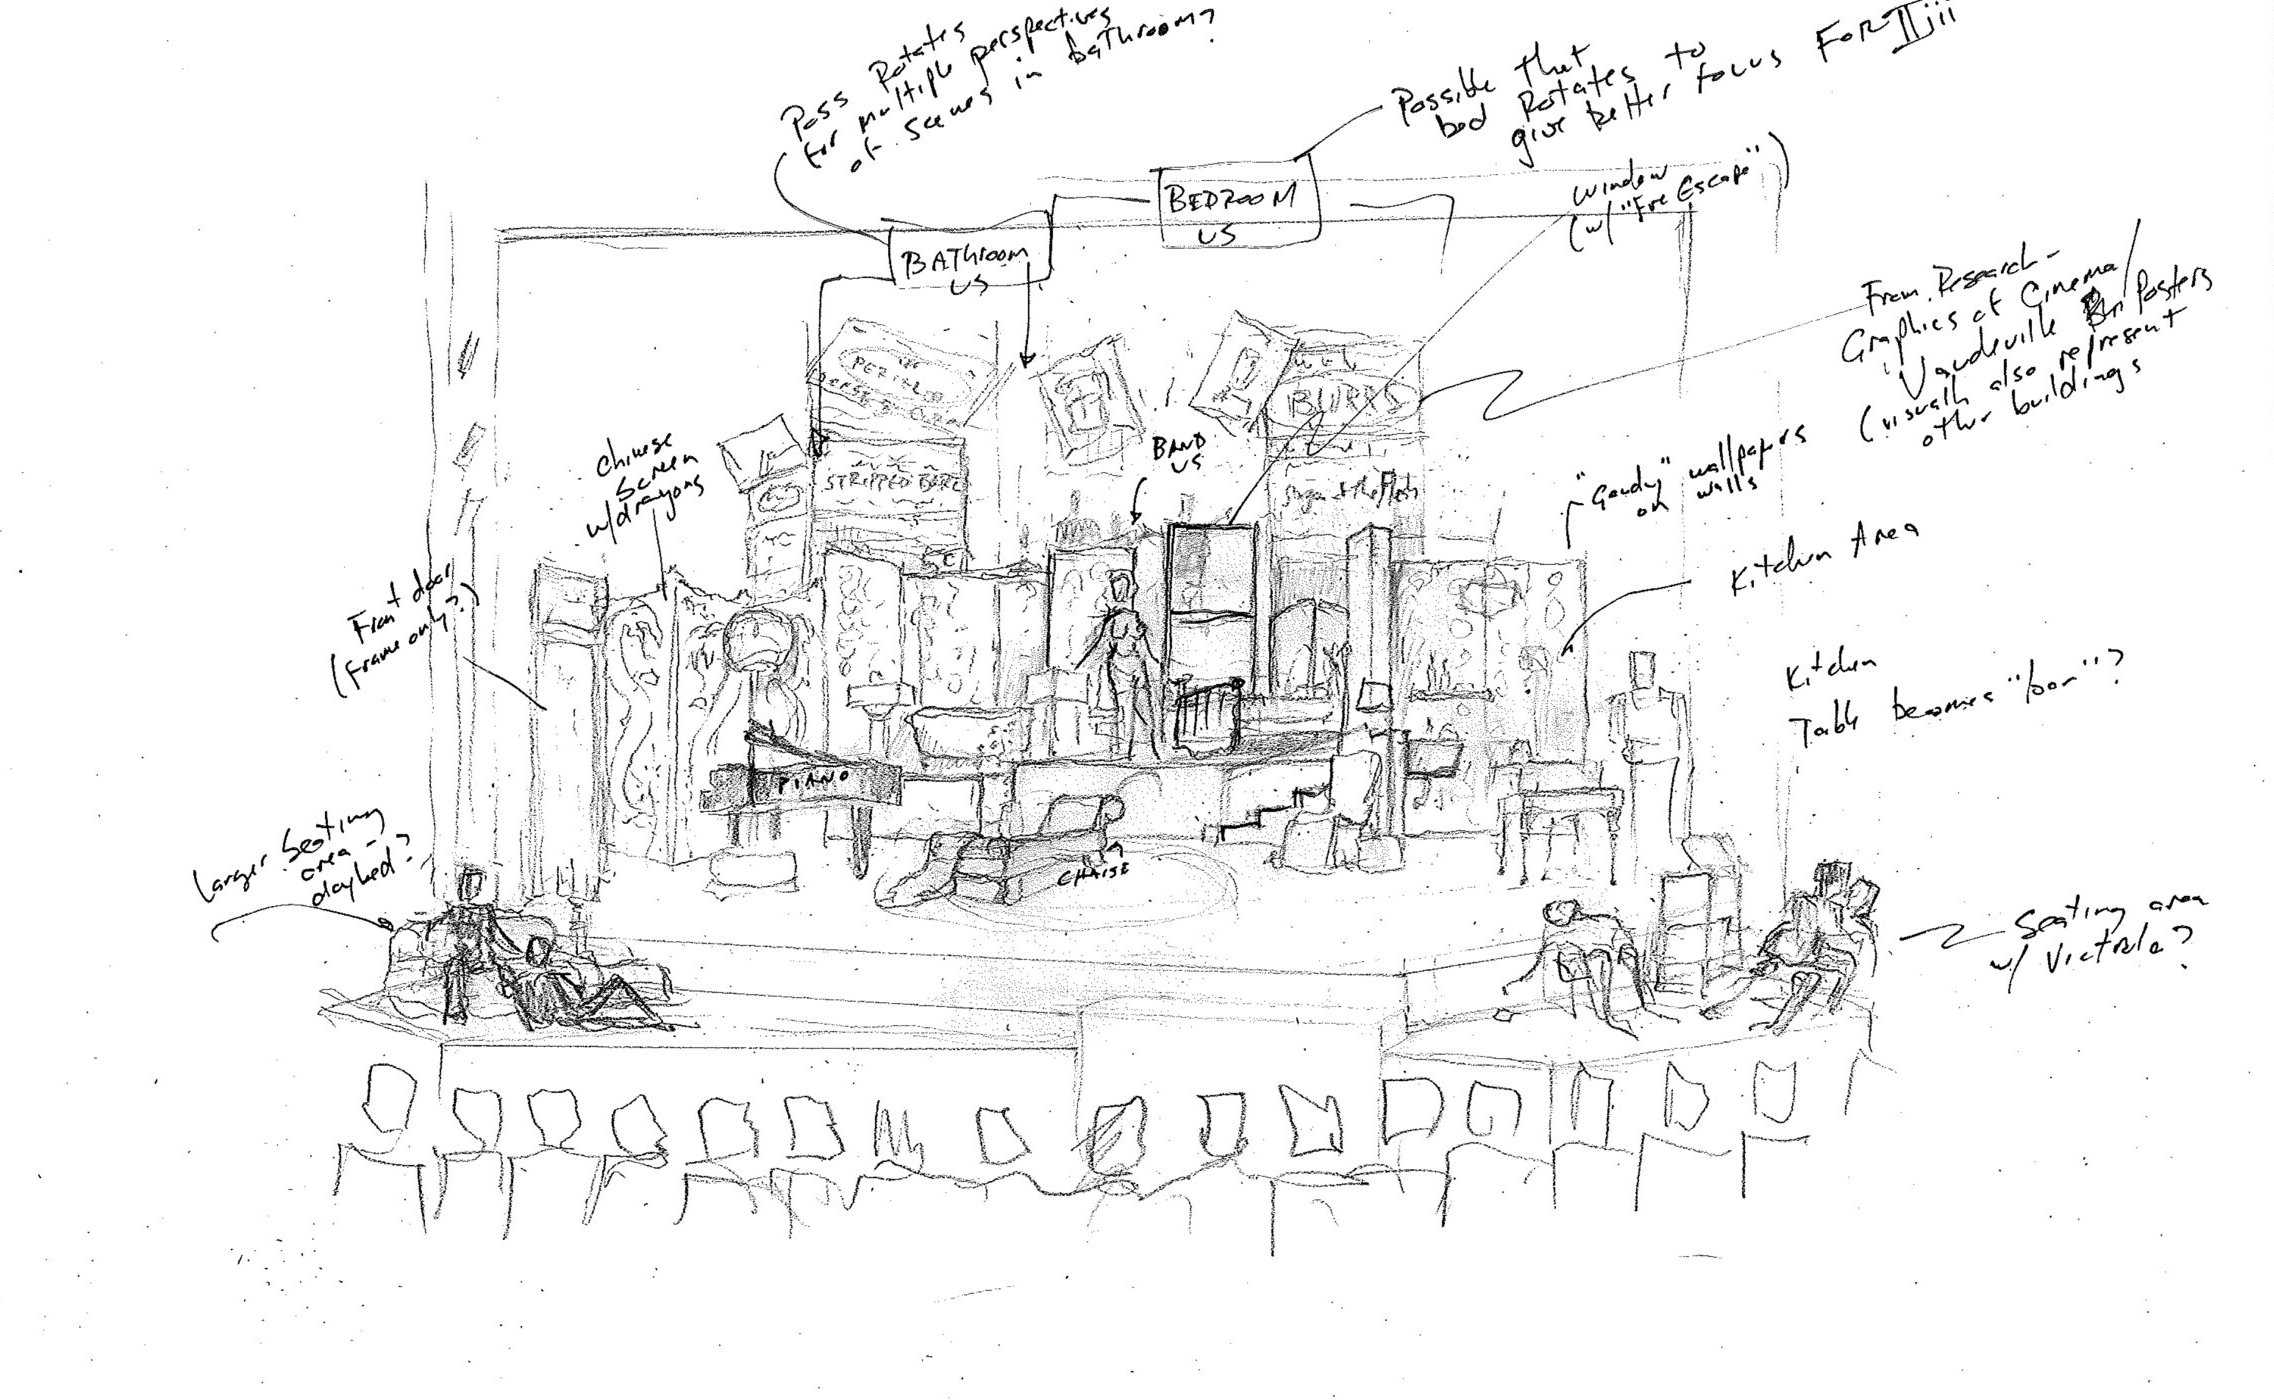 Poss Rotates
for multiple perspectives
of scenes in bathroom?
Possible that
bed Rotates to
give better focus FOR II iii
BEDROOM
US
BAThroom
US
window
(w/ "Fire Escape")
From Research -
Graphics of Cinema/
Vaudeville Posters
(visually also represent
other buildings
BURRS
STRIPPED BARE
BAND
US
Chinese
Screen
w/dragons
"Gaudy" wallpapers
on walls
Kitchen Area
Front door
(Frame only?)
Kitchen
Table becomes "bar"?
PIANO
CHAISE
Larger Seating
area -
daybed?
Seating area
w/ Victrola?